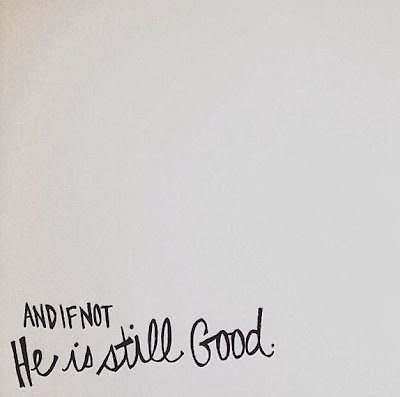 AND IF NOT
He is still Good.